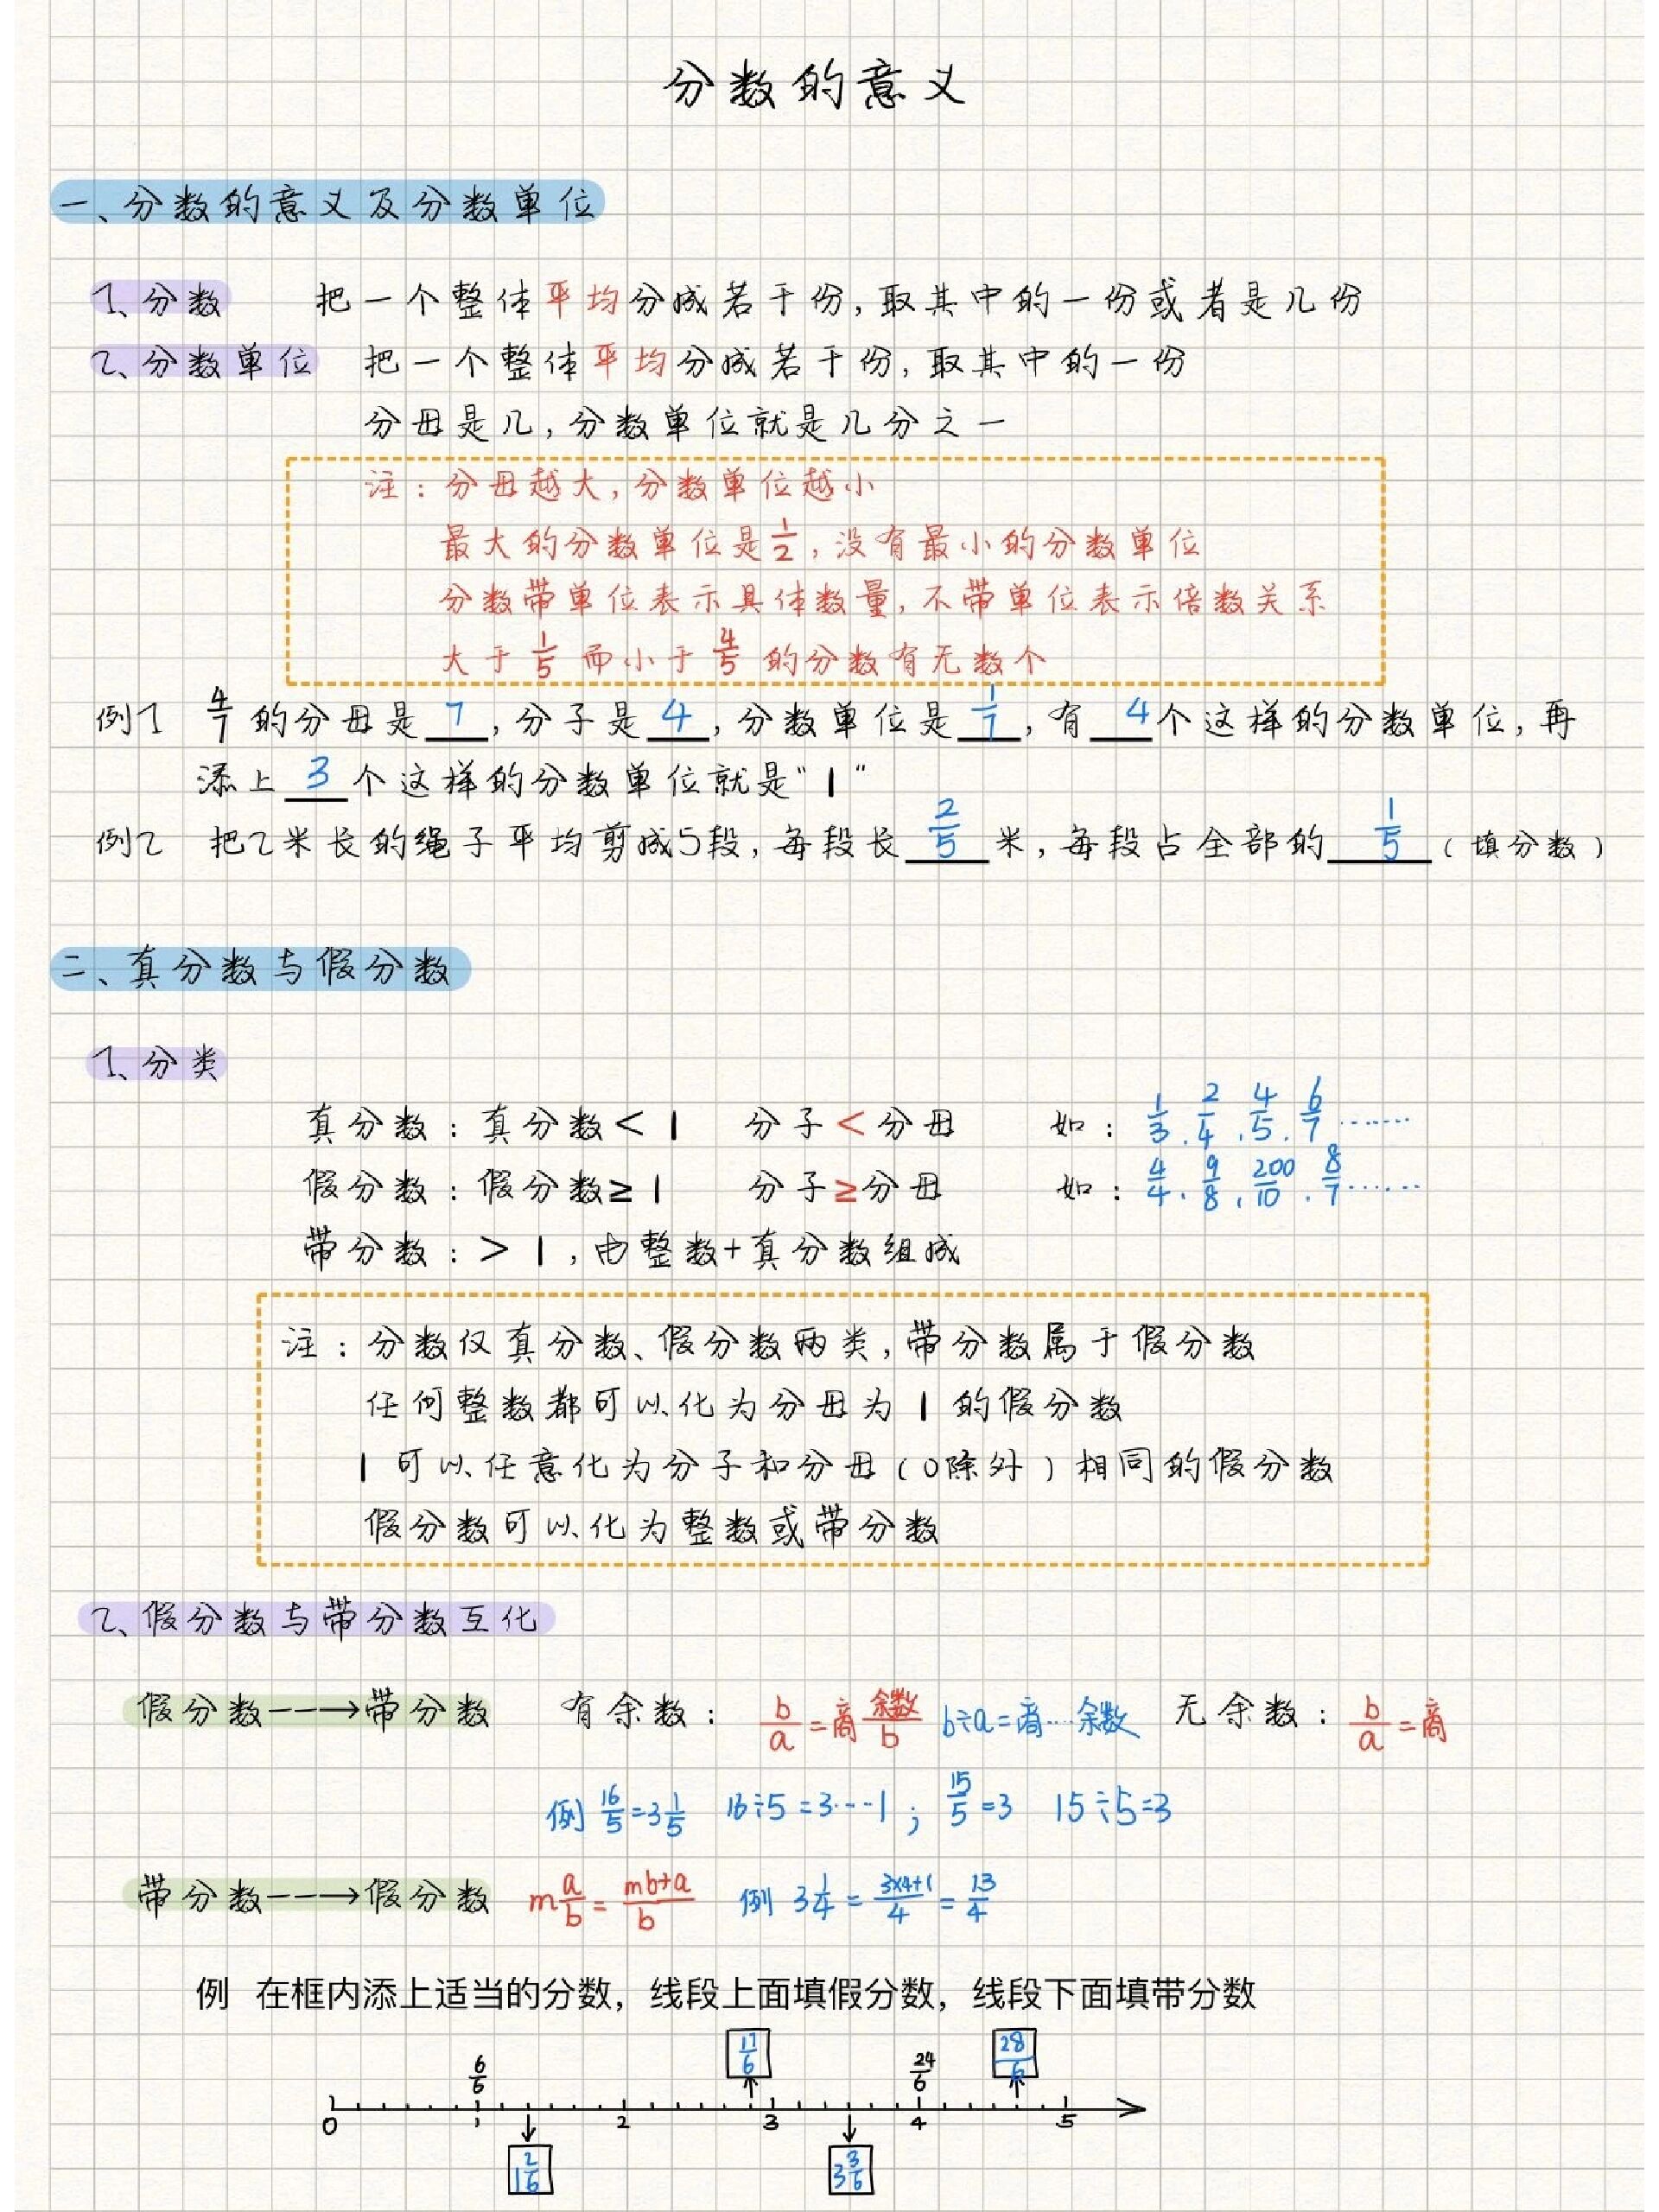 分数的意义
一、分数的意义及分数单位
1、分数 把一个整体平均分成若干份，取其中的一份或者是几份
2、分数单位 把一个整体平均分成若干份，取其中的一份
分母是几，分数单位就是几分之一
注：分母越大，分数单位越小
最大的分数单位是1/2，没有最小的分数单位
分数带单位表示具体数量，不带单位表示倍数关系
大于1/5而小于4/5的分数有无数个
例1 4/7的分母是7，分子是4，分数单位是1/7，有4个这样的分数单位，再
添上3个这样的分数单位就是“1”
例2 把2米长的绳子平均剪成5段，每段长2/5米，每段占全部的1/5（填分数）
二、真分数与假分数
1、分类
真分数：真分数<1 分子<分母 如：1/3、2/4、4/5、6/7……
假分数：假分数≥1 分子≥分母 如：4/4、9/8、200/10、8/7……
带分数：>1，由整数+真分数组成
注：分数仅真分数、假分数两类，带分数属于假分数
任何整数都可以化为分母为1的假分数
1可以任意化为分子和分母（0除外）相同的假分数
假分数可以化为整数或带分数
2、假分数与带分数互化
假分数--→带分数 有余数：b/a=商余数/b b÷a=商…余数 无余数：b/a=商
例 16/5=3 1/5 16÷5=3…1；15/5=3 15÷5=3
带分数--→假分数 m a/b=(mb+a)/b 例 3 1/4=(3×4+1)/4=13/4
例 在框内添上适当的分数，线段上面填假分数，线段下面填带分数
6/6 17/6 24/6 28/6
0 1 2 3 4 5
1 2/6 3 3/6